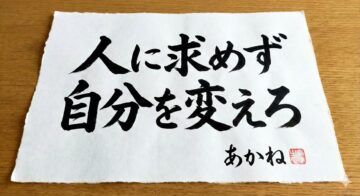 人に求めず
自分を変えろ
あかね